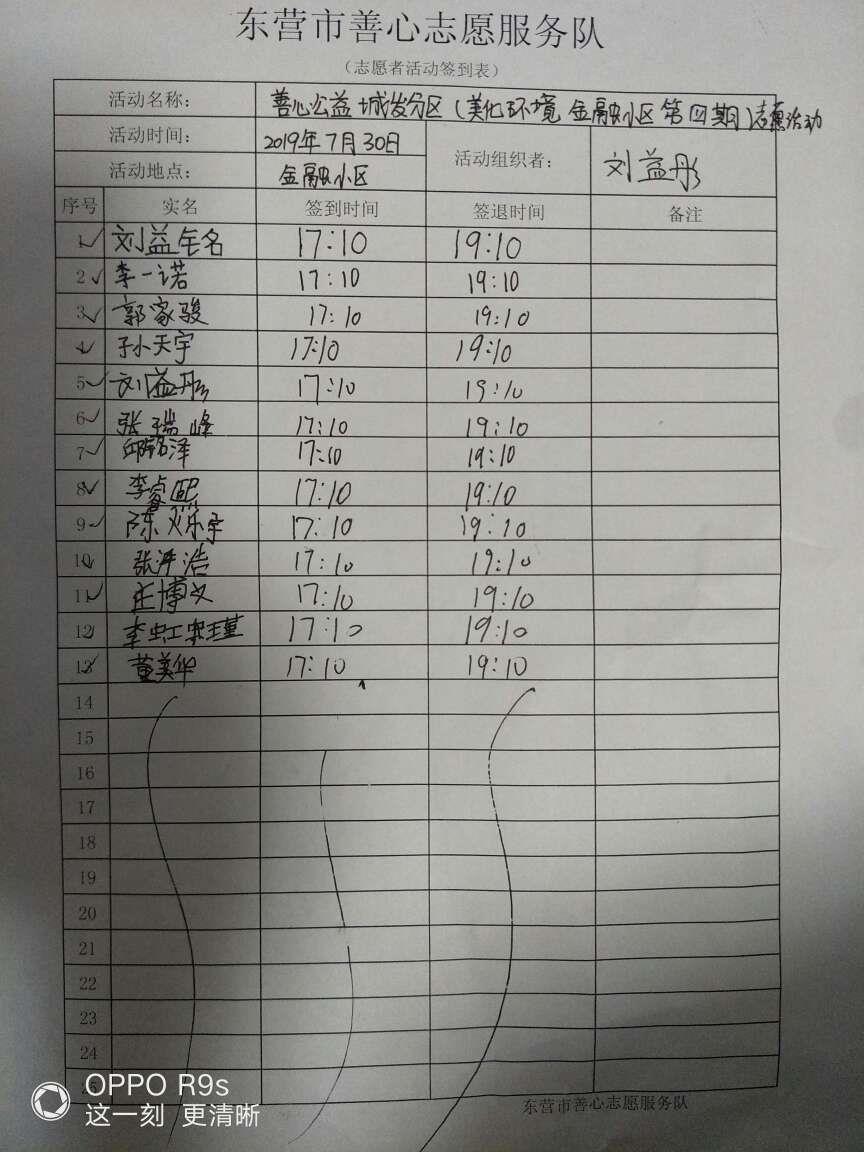 东营市善心志愿服务队
（志愿者活动签到表）
活动名称： 善心公益城发分区（美化环境 金融小区第四期）志愿活动
活动时间： 2019年7月30日 活动组织者： 刘益彤
活动地点： 金融小区
序号 实名 签到时间 签退时间 备注
1 刘益铭 17:10 19:10
2 李一诺 17:10 19:10
3 郭家骏 17:10 19:10
4 孙天宇 17:10 19:10
5 刘益彤 17:10 19:10
6 张瑞峰 17:10 19:10
7 邱铭泽 17:10 19:10
8 李睿熙 17:10 19:10
9 陈烁宇 17:10 19:10
10 张洋浩 17:10 19:10
11 庄博文 17:10 19:10
12 李虹瑾 17:10 19:10
13 董美华 17:10 19:10
14
15
16
17
18
19
20
21
22
23
24
25
OPPO R9s
这一刻 更清晰
东营市善心志愿服务队